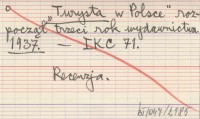 "Turysta w Polsce" roz-
począł trzeci rok wydawnictwa
1937. — IKC 71.
Recenzja.